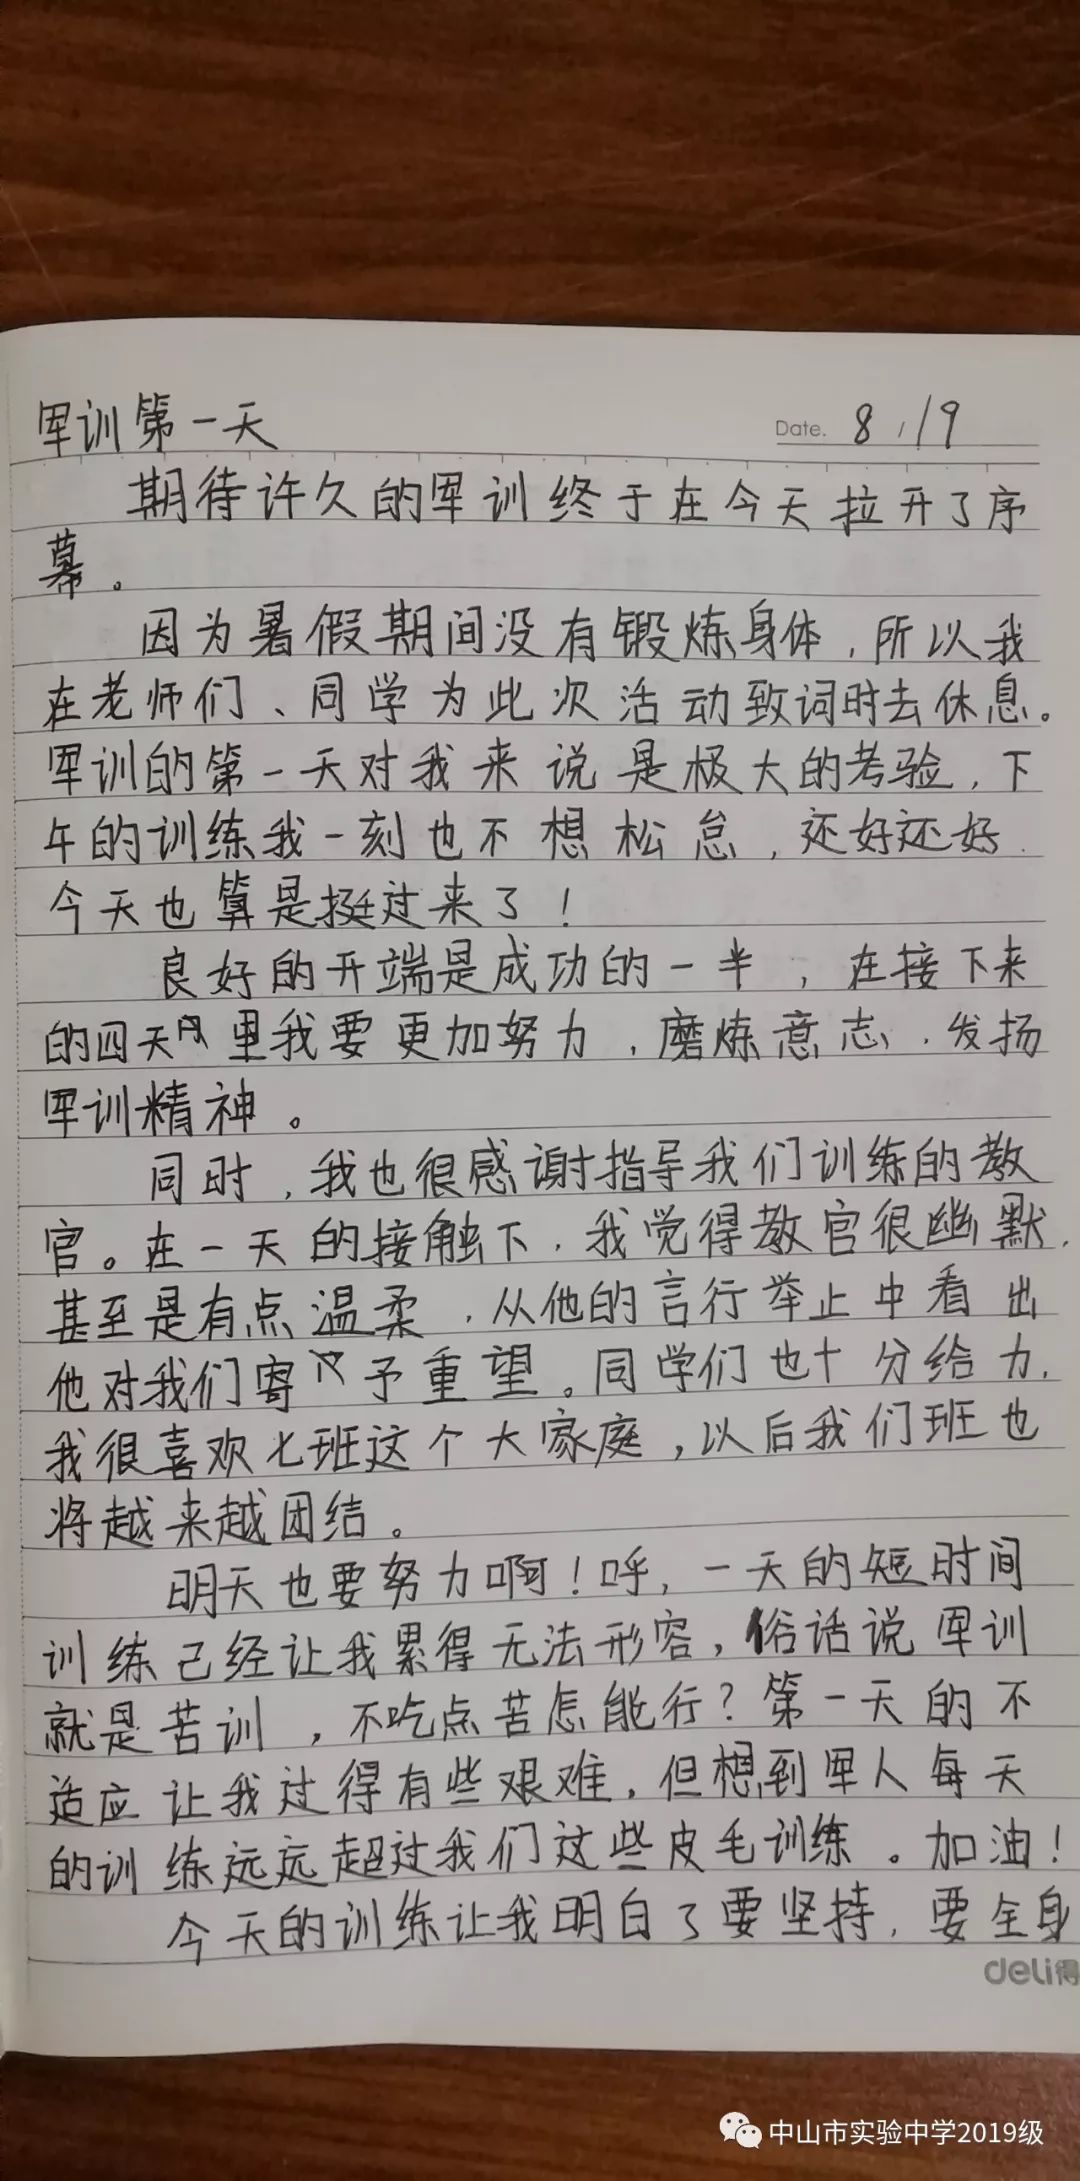 军训第一天
Date. 8/19
期待许久的军训终于在今天拉开了序
幕。
因为暑假期间没有锻炼身体，所以我
在老师们、同学为此次活动致词时去休息。
军训的第一天对我来说是极大的考验，下
午的训练我一刻也不想松怠，还好还好
今天也算是挺过来了！
良好的开端是成功的一半，在接下来
的四天内里我要更加努力，磨炼意志，发扬
军训精神。
同时，我也很感谢指导我们训练的教
官。在一天的接触下，我觉得教官很幽默，
甚至是有点温柔，从他的言行举止中看出
他对我们寄予重望。同学们也十分给力，
我很喜欢七班这个大家庭，以后我们班也
将越来越团结。
明天也要努力啊！呼，一天的短时间
训练已经让我累得无法形容，俗话说军训
就是苦训，不吃点苦怎能行？第一天的不
适应让我过得有些艰难，但想到军人每天
的训练远远超过我们这些皮毛训练。加油！
今天的训练让我明白了要坚持，要全身
deli得
中山市实验中学2019级